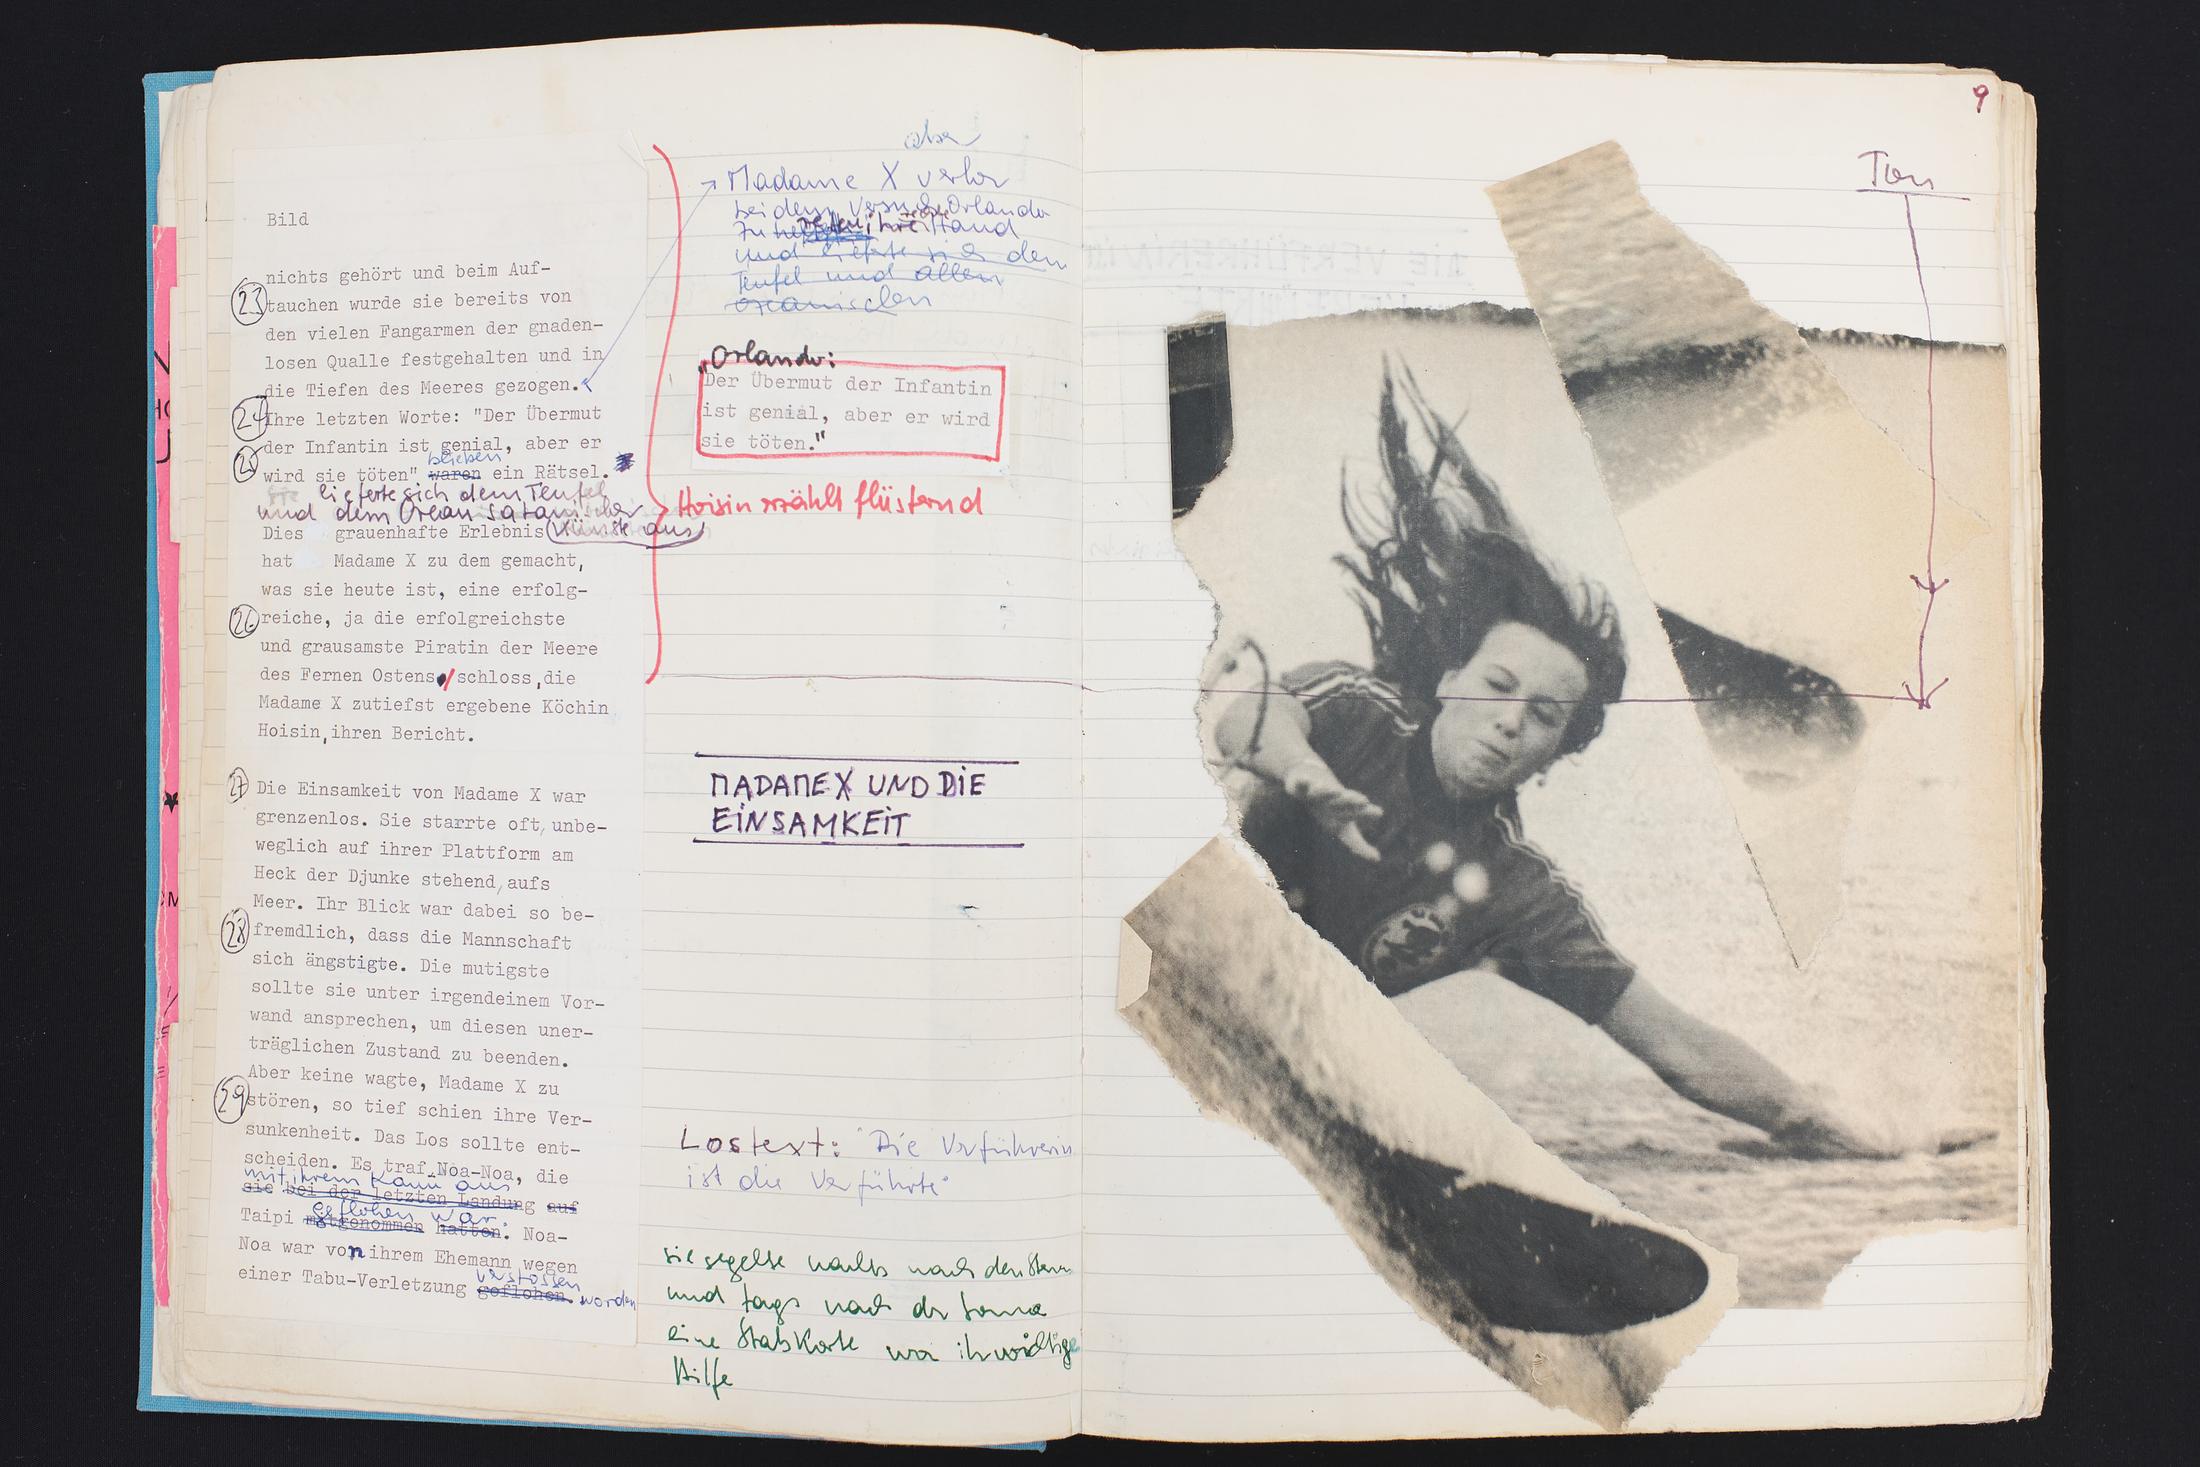 Bild
nichts gehört und beim Auf-
23
tauchen wurde sie bereits von
den vielen Fangarmen der gnaden-
losen Qualle festgehalten und in
die Tiefen des Meeres gezogen.
24
Ihre letzten Worte: "Der Übermut
der Infantin ist genial, aber er
25
blieben
wird sie töten" waren ein Rätsel.
Sie lieferte sich dem Teufel
und dem Ozean satanischer
Künste aus
Dies grauenhafte Erlebnis
hat Madame X zu dem gemacht,
was sie heute ist, eine erfolg-
26
reiche, ja die erfolgreichste
und grausamste Piratin der Meere
des Fernen Ostens / schloss, die
Madame X zutiefst ergebene Köchin
Hoisin, ihren Bericht.
27
Die Einsamkeit von Madame X war
grenzenlos. Sie starrte oft, unbe-
weglich auf ihrer Plattform am
Heck der Djunke stehend, aufs
Meer. Ihr Blick war dabei so be-
28
fremdlich, dass die Mannschaft
sich ängstigte. Die mutigste
sollte sie unter irgendeinem Vor-
wand ansprechen, um diesen uner-
träglichen Zustand zu beenden.
Aber keine wagte, Madame X zu
29
stören, so tief schien ihre Ver-
sunkenheit. Das Los sollte ent-
scheiden. Es traf Noa-Noa, die
mit ihrem Kanu aus
sie bei der letzten Landung auf
geflohen war.
Taipi mitgenommen hatten. Noa-
Noa war von ihrem Ehemann wegen
verstossen
einer Tabu-Verletzung geflohen. worden
aber
Madame X verlor
bei dem Versuch Orlando
zu retten, ihre rechte Hand
und lieferte sich dem
Teufel und allen
ozeanischen
"Orlando:
Der Übermut der Infantin
ist genial, aber er wird
sie töten."
Hoisin erzählt flüsternd
MADAME X UND DIE
EINSAMKEIT
Lostext: "Die Verführerin
ist die Verführte"
sie segelte nachts nach den Sternen
und tags nach der Sonne
eine Stabskarte war ihr wichtige
Hilfe
9
Ton